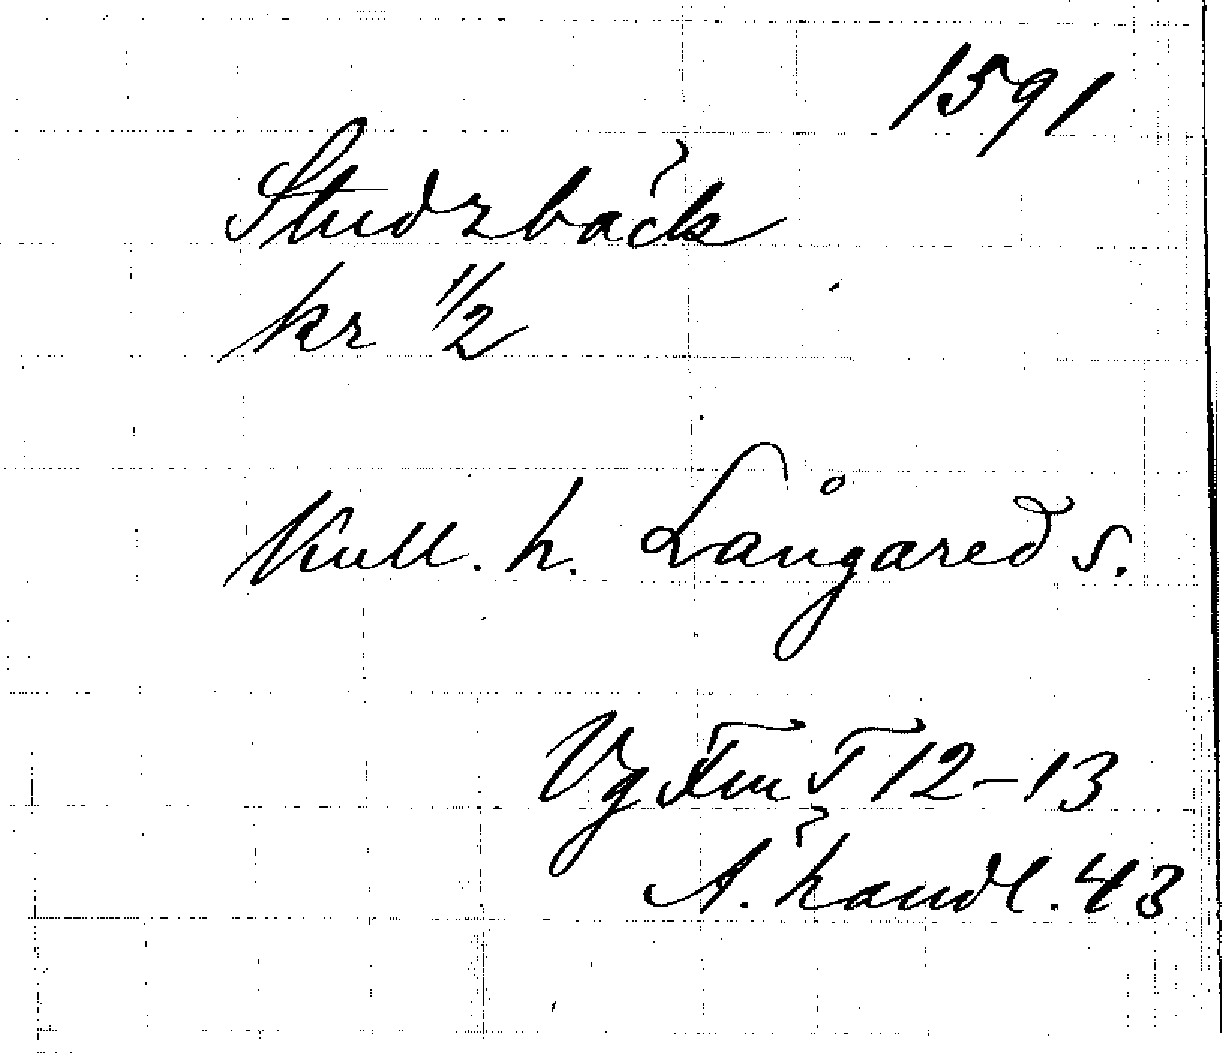 1591
Studzbäck
kr 1/2
Kull. h. Långared s.
Vg Fm T 12-13
Ä. handl. 43